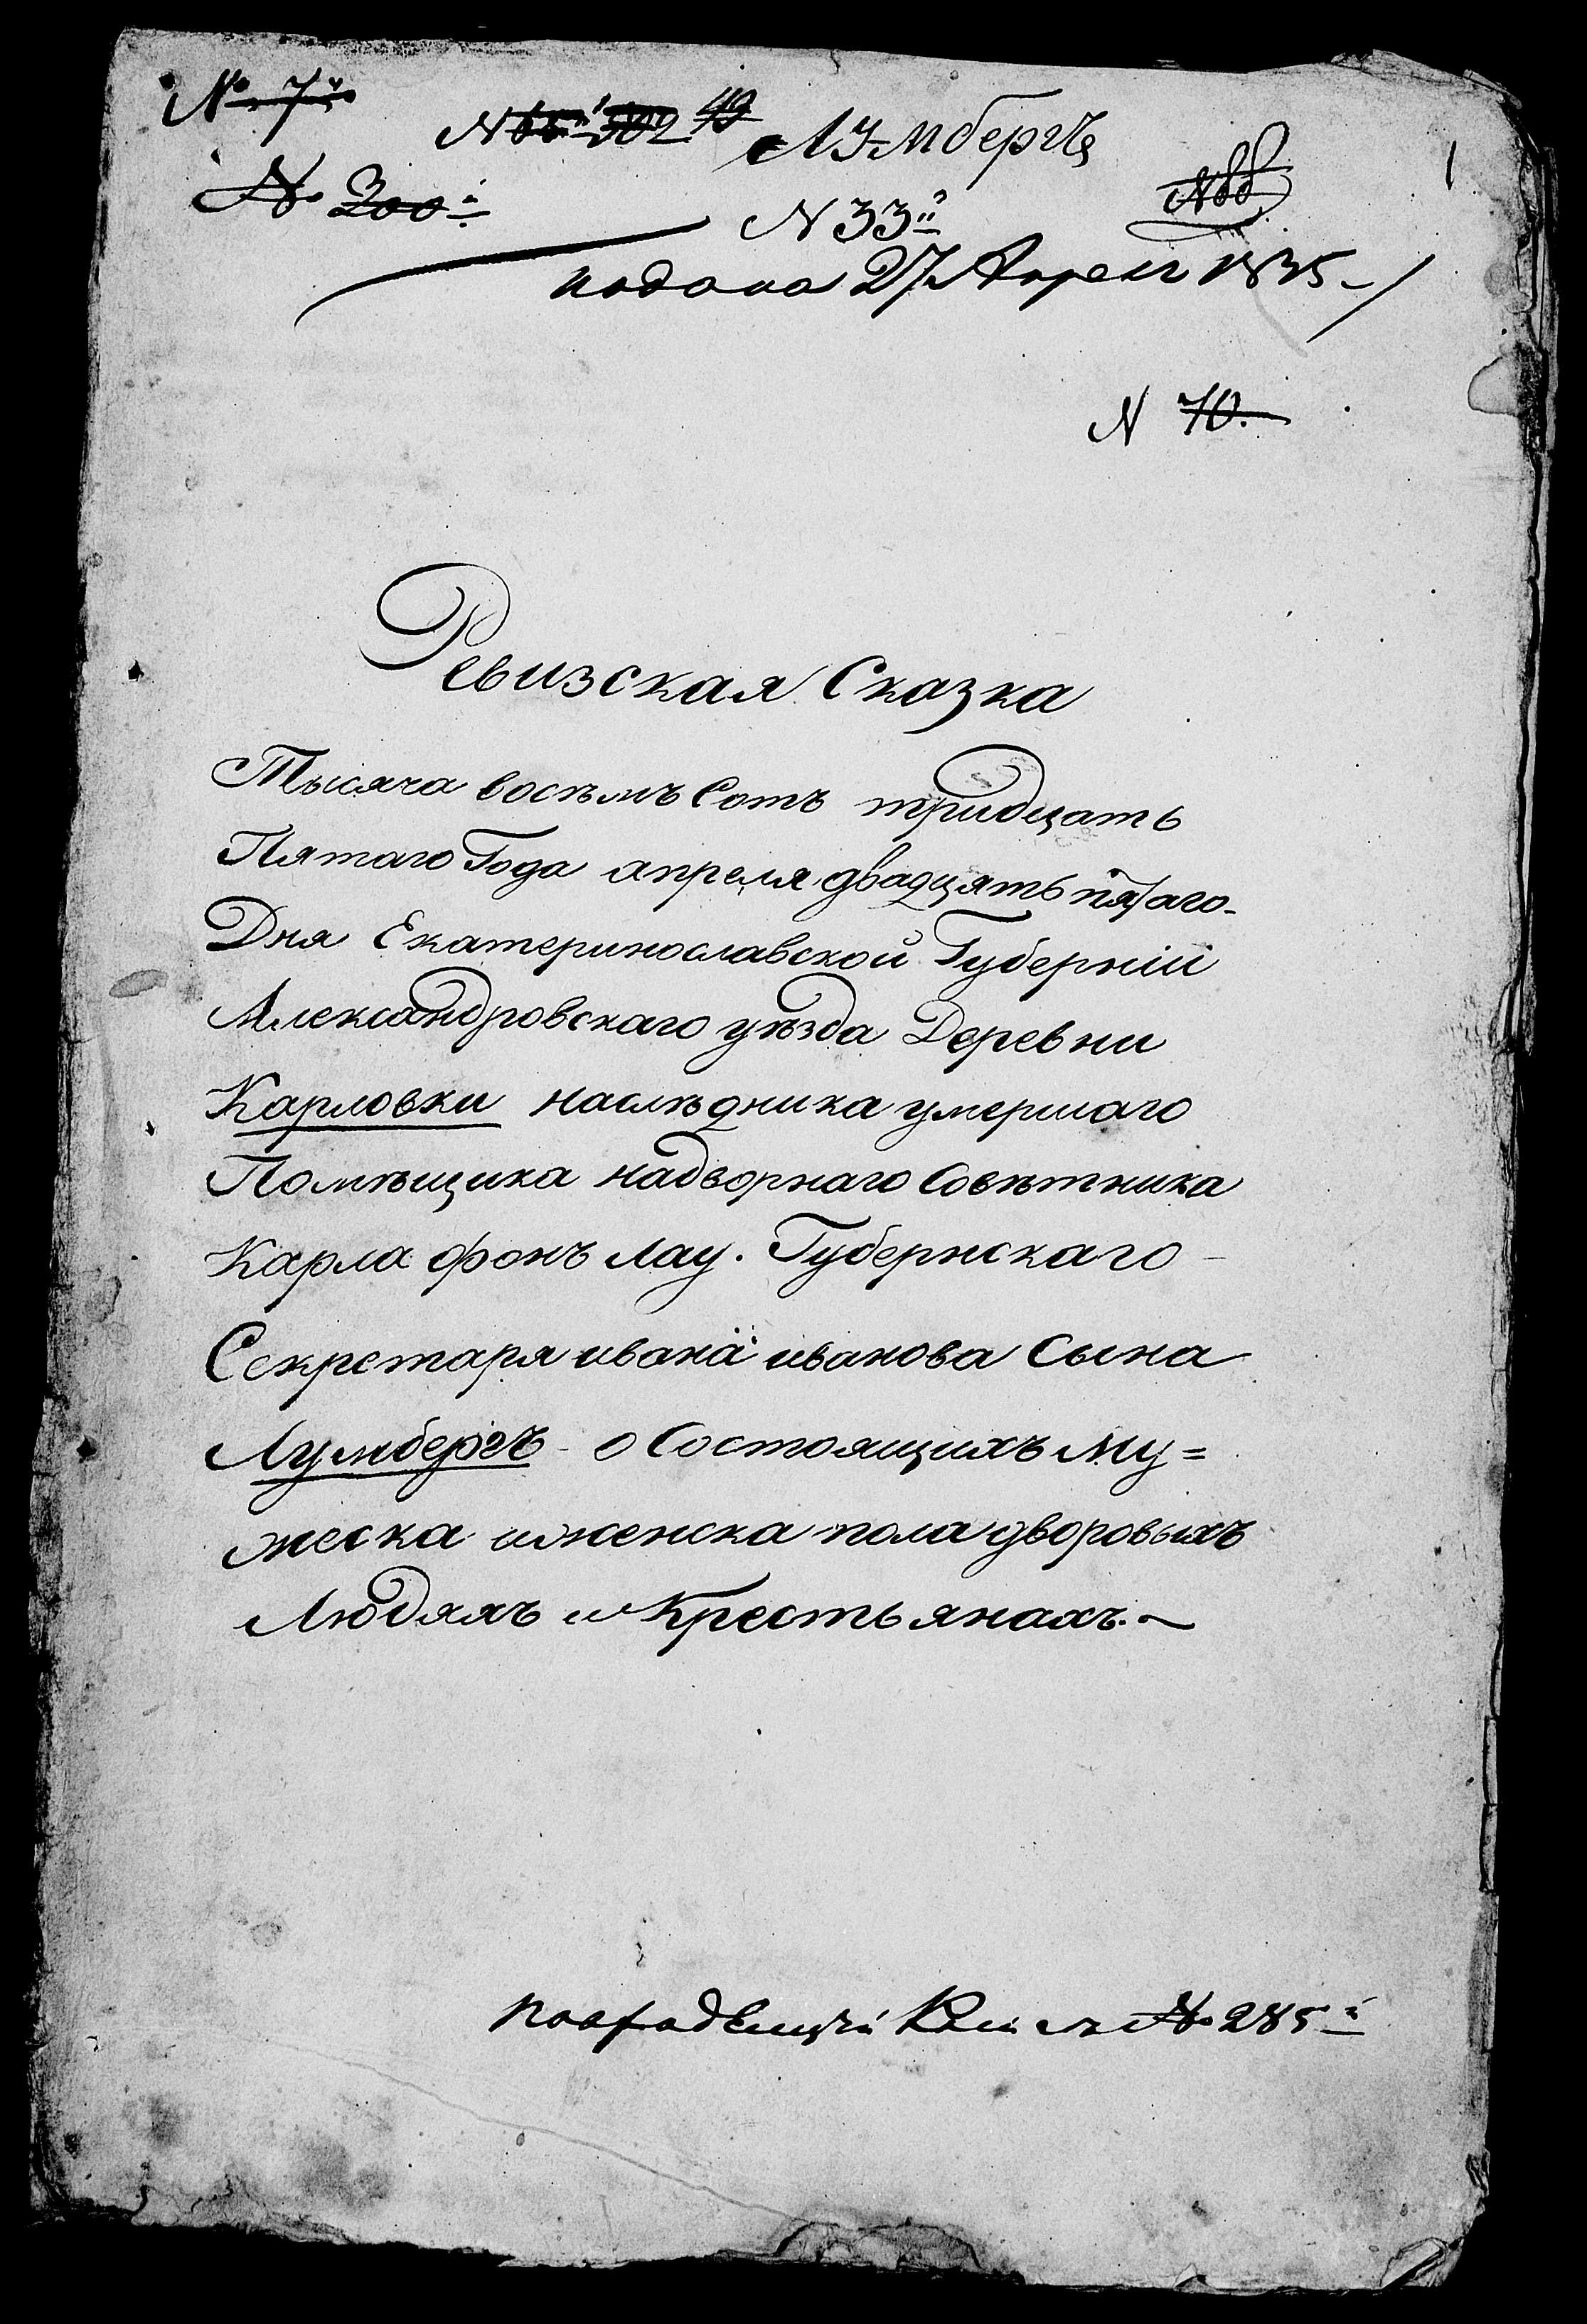 № 7й
№ 302 49 Лумбергъ
№ 300й
№ 33й
1
подана 27 Апреля 1835
№ 70.
Ревизская Сказка
Тысяча восѣмъ Сотъ тридцать
Пятаго Года апреля двадцять пятаго
Дня Екатеринославской Губерніи
Александровскаго уѣзда Деревни
Карловки наслѣдника умершаго
Помѣщика надворнаго Совѣтника
Карла фонъ Лау. Губернскаго
Секретаря ивана иванова Сына
Лумбергъ о Состоящихъ му=
жеска и женска пола дворовыхъ
Людяхъ и Крестьянахъ.
№ 285й